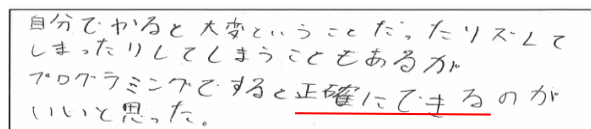 自分でやると大変ということだったりズレて
しまったりしてしまうこともあるが
プログラミングですると正確にできるのが
いいと思った。